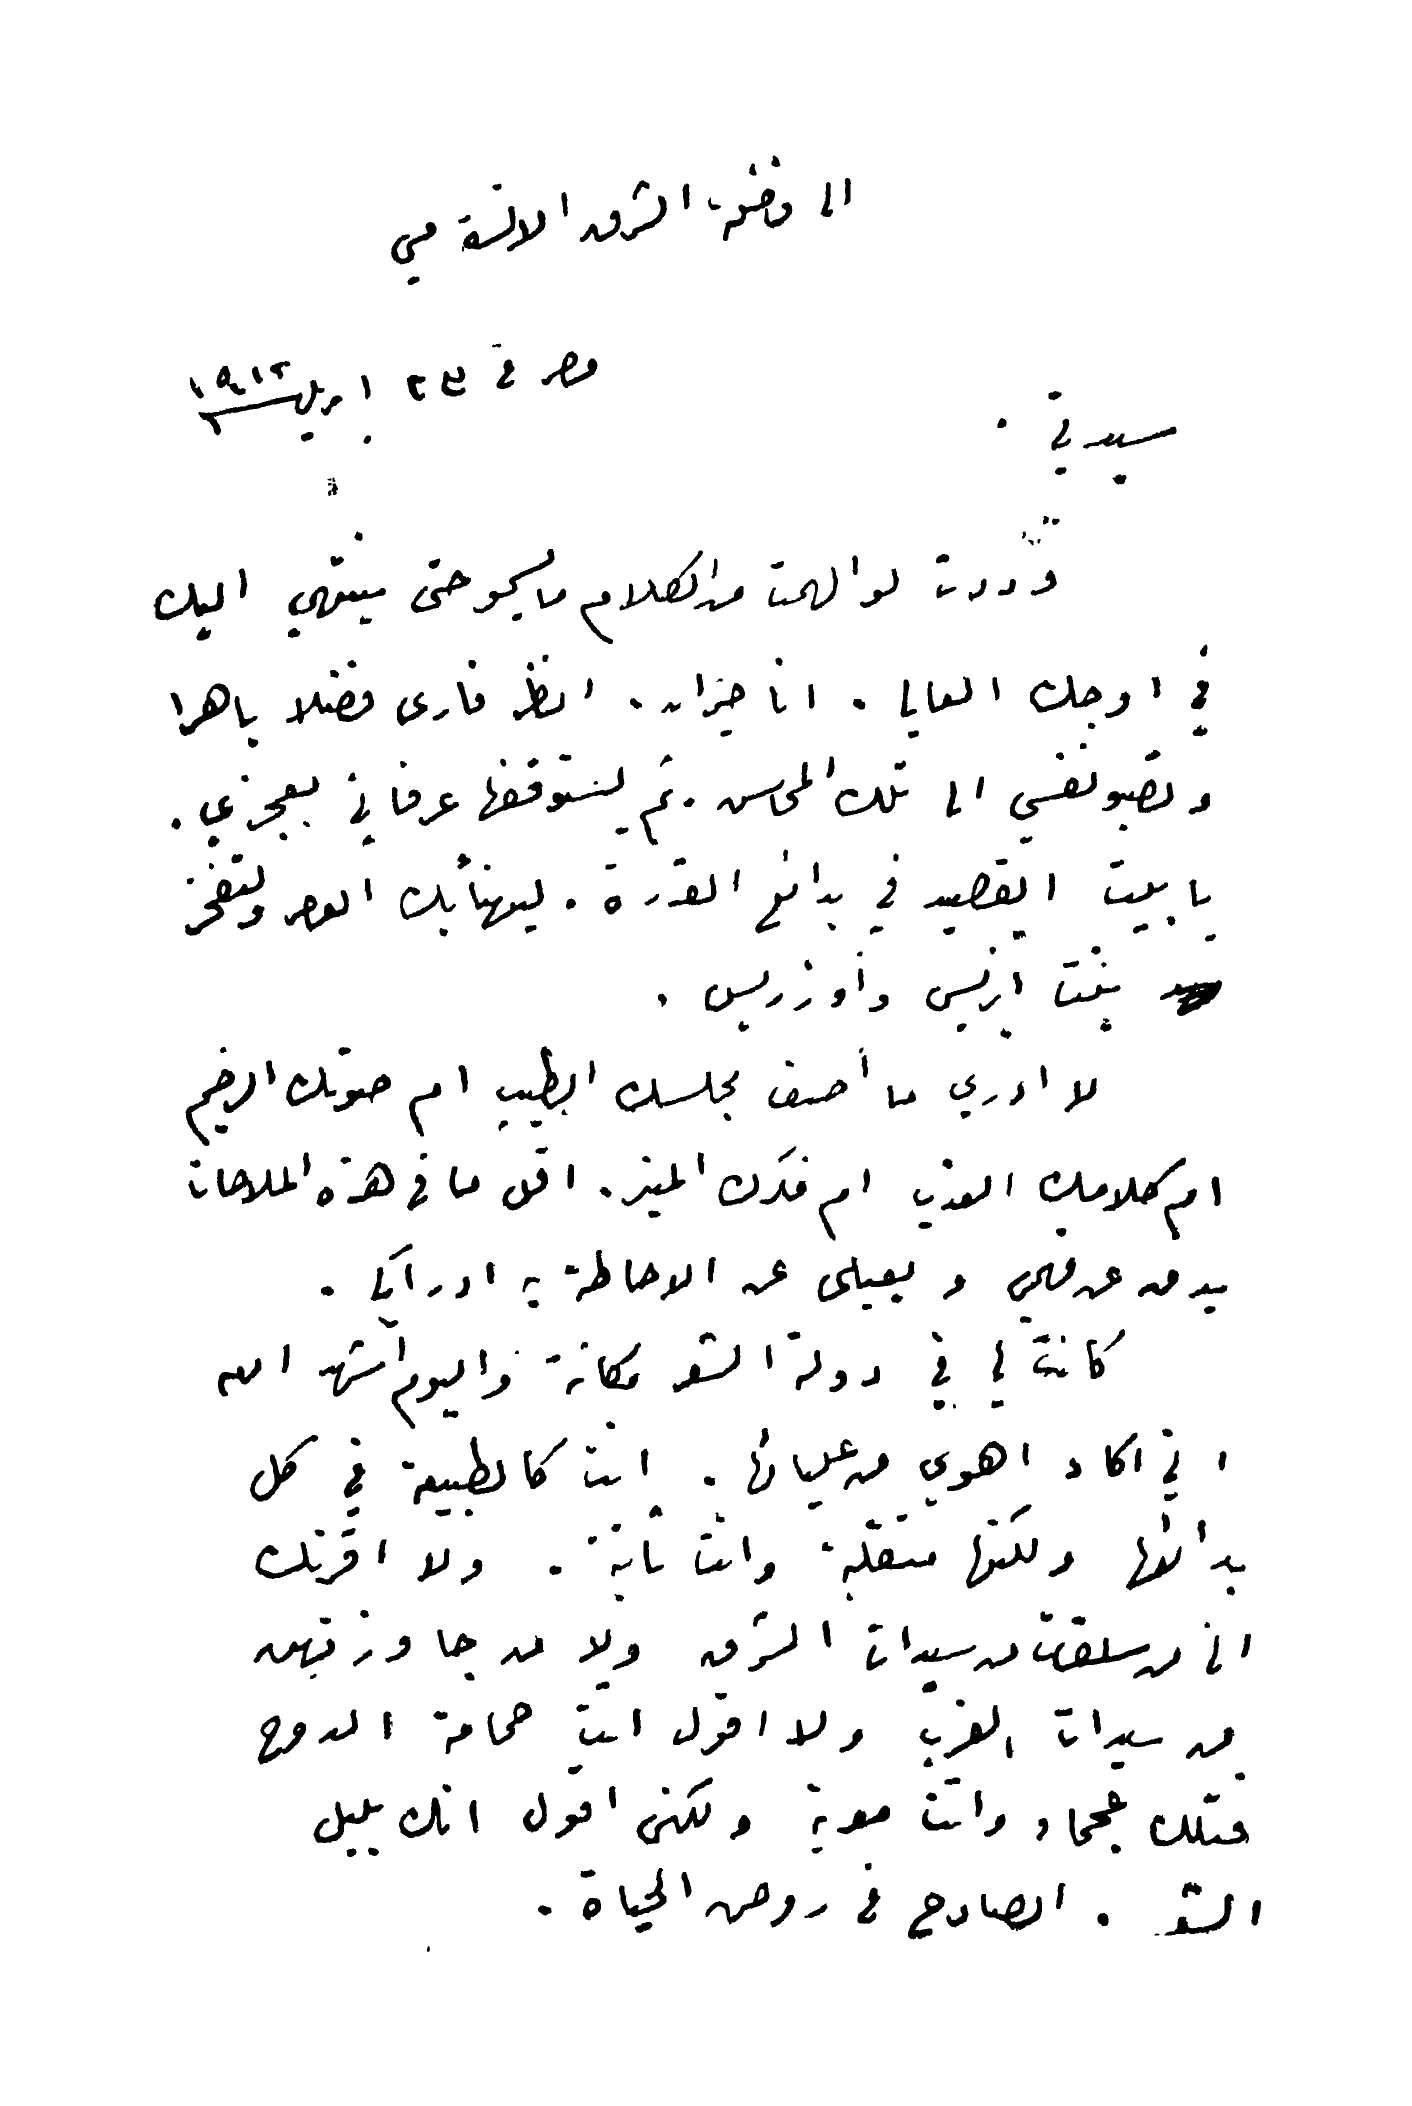 الى فاضلة الشرق الانسة مي
مصر في ٢٣ ابريل ١٩١٢
سيدتي .
وددت لو الهمت من الكلام ما يسمو حتى ينتهي اليك
في اوجك العالي . انا حيران . انظر فارى فضلا باهرا
وتصبو نفسي الى تلك المحاسن . ثم يستوقفها عرفاني بعجزي .
يا بيت القصيد في بدائع القدرة . ليهنأ بك العصر ولتفخر
بنت ايزيس وأوزريس .
لا ادري ما أصف مجلسك الطيب ام صوتك الرخيم
ام كلامك العذب ام فكرك المنير . اقل ما في هذه الملاحات
يدق عن فهمي ويعيى عن الاحاطة به ادراكي .
كانت لي في دولة الشعر مكانة واليوم أشهد الله
اني اكاد اهوي من عليائها . انت كالطبيعة في كل
بدائعها ولكنها متقلبة وانت ثابتة . ولا اقرنك
الى من سلفت من سيدات الشرق ولا من جاوزتهن
من سيدات الغرب ولا اقول انت حمامة الدوح
فتلك عجماء وانت معربة ولكني اقول انك بلبل
الشعر . الصادح في روض الحياة .